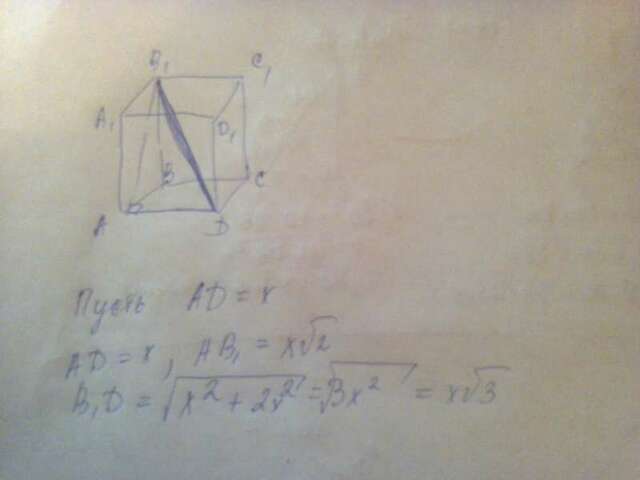 B₁ C₁
A₁ D₁
B C
A D
Пусть AD = x
AD = x, AB₁ = x√2
B₁D = √x² + 2x² = √3x² = x√3